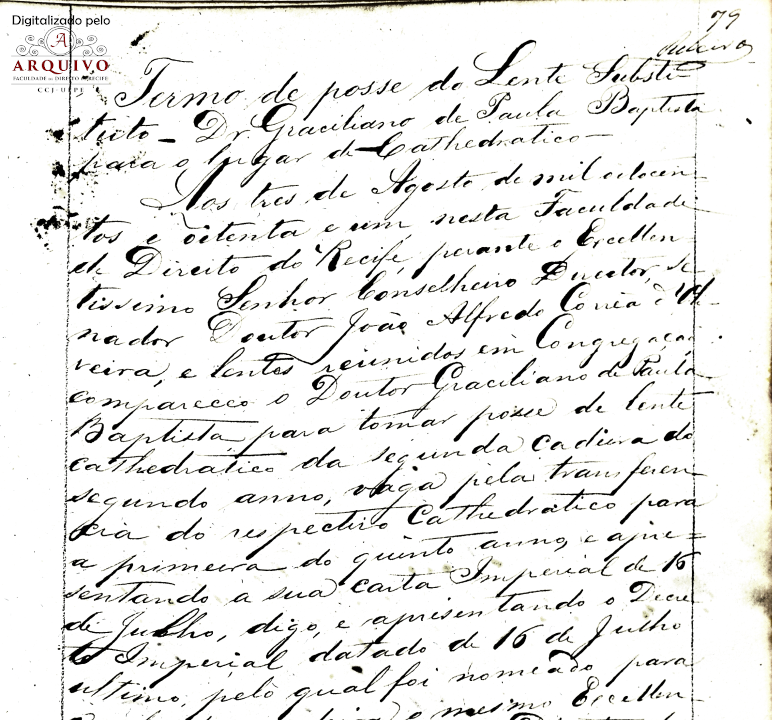 Digitalizado pelo
A
ARQUIVO
FACULDADE DE DIREITO DO RECIFE
CCJ-UFPE
79
Termo de posse do Lente Substi-
tuto - Dr. Graciliano de Paula Baptista
para o lugar de Cathedratico -
Aos tres de Agosto de mil oitocen-
tos e oitenta e um, nesta Faculdade
de Direito do Recife, perante o Excellen-
tissimo Senhor Conselheiro Director, se-
nador Doutor João Alfredo Corrêa d' Oli-
veira, e lentes reunidos em Congregação,
compareceo o Doutor Graciliano de Paula
Baptista, para tomar posse de lente
cathedratico da segunda cadeira do
segundo anno, vaga pela transferen-
cia do respectivo Cathedratico para
a primeira do quinto anno, e apre=
sentando a sua carta Imperial de 16
de Julho, digo, e apresentando o Decre-
to Imperial datado de 16 de Julho
ultimo, pelo qual foi nomeado para
o mesmo Excellen-